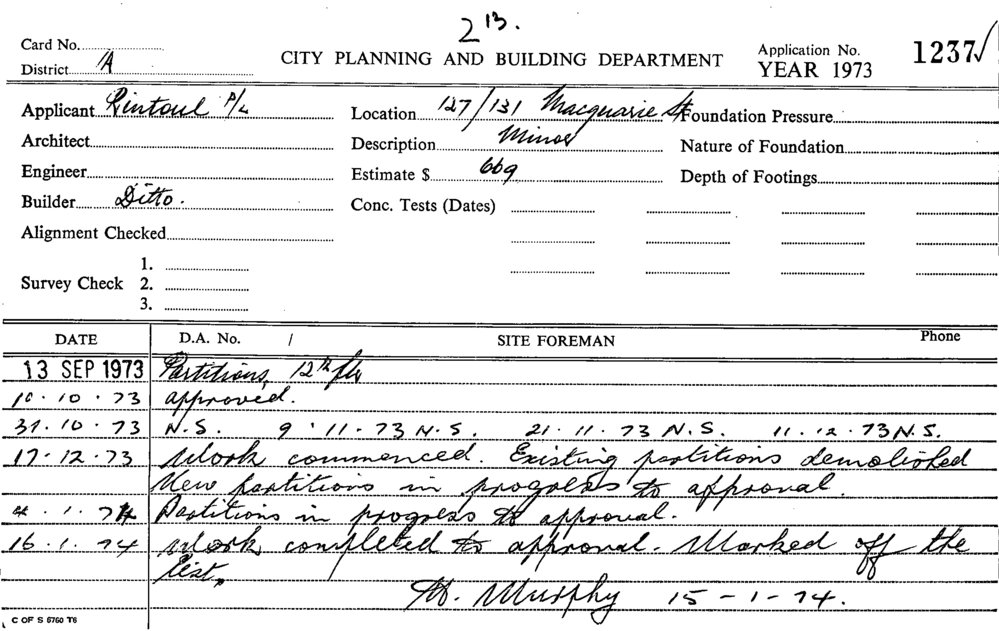 2 13.
Card No.
District A
CITY PLANNING AND BUILDING DEPARTMENT
Application No. 1237
YEAR 1973
Applicant Rintoul P/L
Location 127/131 Macquarie St
Foundation Pressure
Architect
Description Minor
Nature of Foundation
Engineer
Estimate $ 669
Depth of Footings
Builder Ditto.
Conc. Tests (Dates)
Alignment Checked
Survey Check 1.
2.
3.
DATE D.A. No. / SITE FOREMAN Phone
13 SEP 1973 Partitions, 12th flr
10.10.73 approved.
31.10.73 N.S. 9.11.73 N.S. 21.11.73 N.S. 11.12.73 N.S.
17.12.73 Work commenced. Existing partitions demolished
New partitions in progress to approval.
4.1.74 Partitions in progress to approval.
16.1.74 Work completed to approval. Marked off the
list.
Murphy 15-1-74.
C OF S 6760 T6